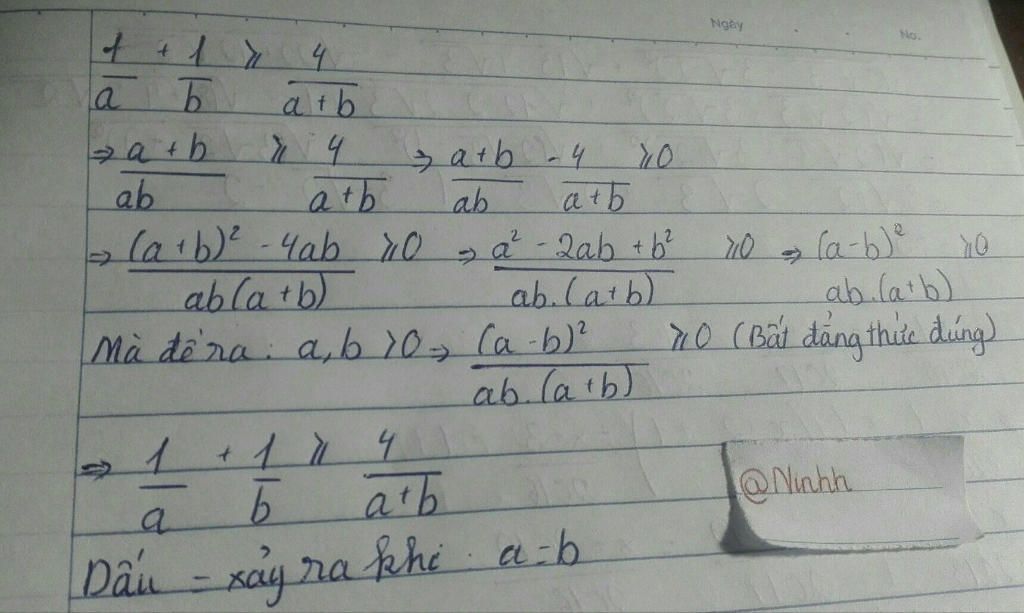 Ngày No.
1/a + 1/b ≥ 4/(a+b)
⇒ (a+b)/ab ≥ 4/(a+b) ⇒ (a+b)/ab - 4/(a+b) ≥ 0
⇒ ((a+b)² - 4ab)/(ab(a+b)) ≥ 0 ⇒ (a² - 2ab + b²)/(ab.(a+b)) ≥ 0 ⇒ (a-b)²/(ab.(a+b)) ≥ 0
Mà đề ra: a,b > 0 ⇒ (a-b)²/(ab.(a+b)) ≥ 0 (Bất đẳng thức đúng)
⇒ 1/a + 1/b ≥ 4/(a+b)
@Ninhh
Dấu = xảy ra khi: a=b